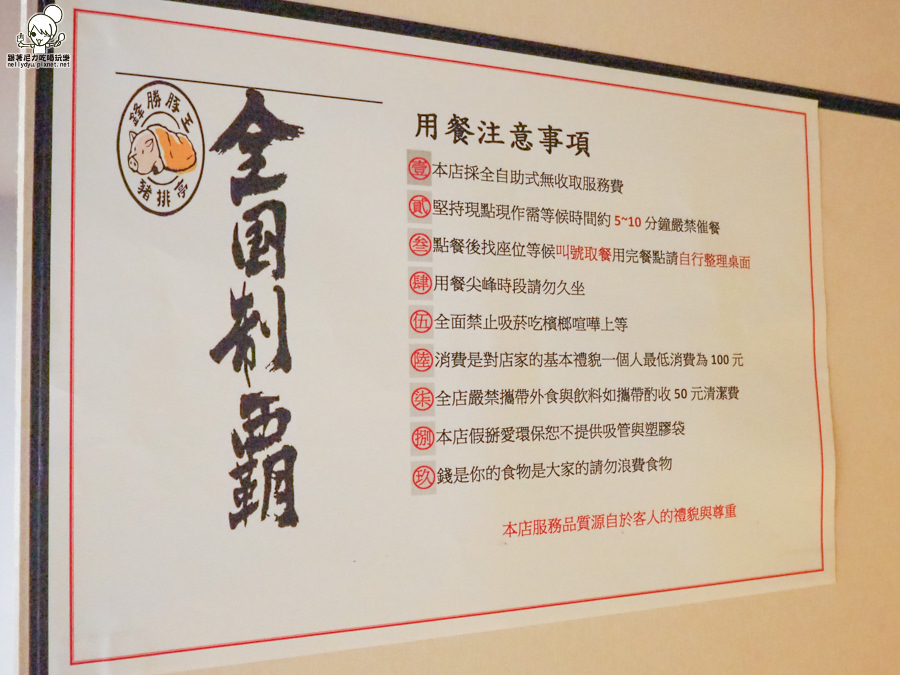 跟著尼力吃喝玩樂
nellydyu.pixnet.net
鋒勝豚王
豬排亭
全国制霸
用餐注意事項
壹 本店採全自助式無收取服務費
貳 堅持現點現作需等候時間約 5~10 分鐘嚴禁催餐
叁 點餐後找座位等候叫號取餐用完餐點請自行整理桌面
肆 用餐尖峰時段請勿久坐
伍 全面禁止吸菸吃檳榔喧嘩上等
陸 消費是對店家的基本禮貌一個人最低消費為 100 元
柒 全店嚴禁攜帶外食與飲料如攜帶酌收 50 元清潔費
捌 本店假掰愛環保恕不提供吸管與塑膠袋
玖 錢是你的食物是大家的請勿浪費食物
本店服務品質源自於客人的禮貌與尊重